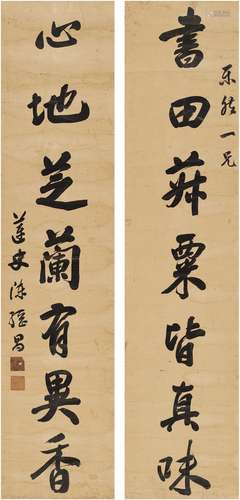 一兄
書田菽粟皆真味
心地芝蘭有異香
蓮史陳繼昌